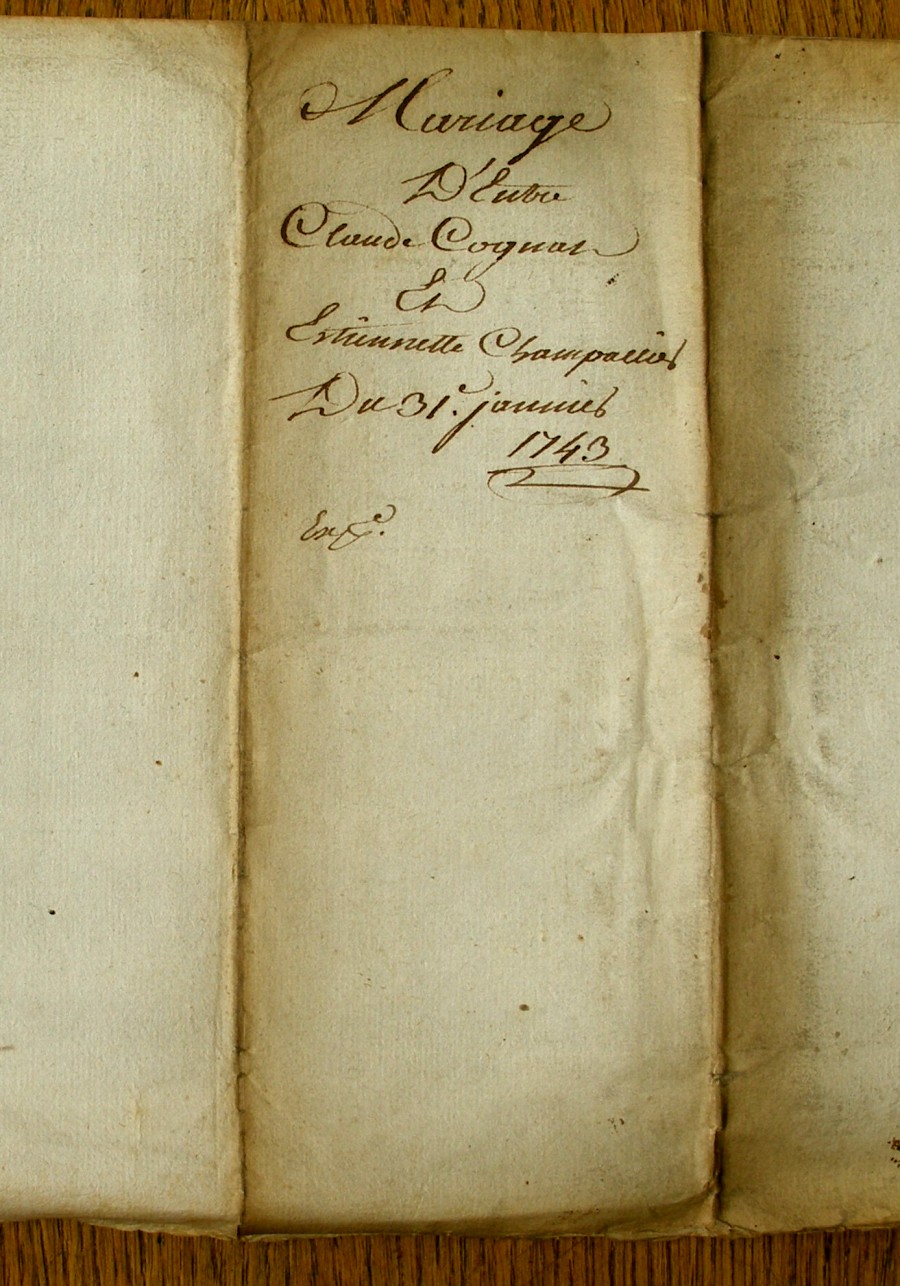 Mariage
D'Entre
Claude Cognat
Et
Estiennette Champallier
Du 31e. janvier
1743
Expe.